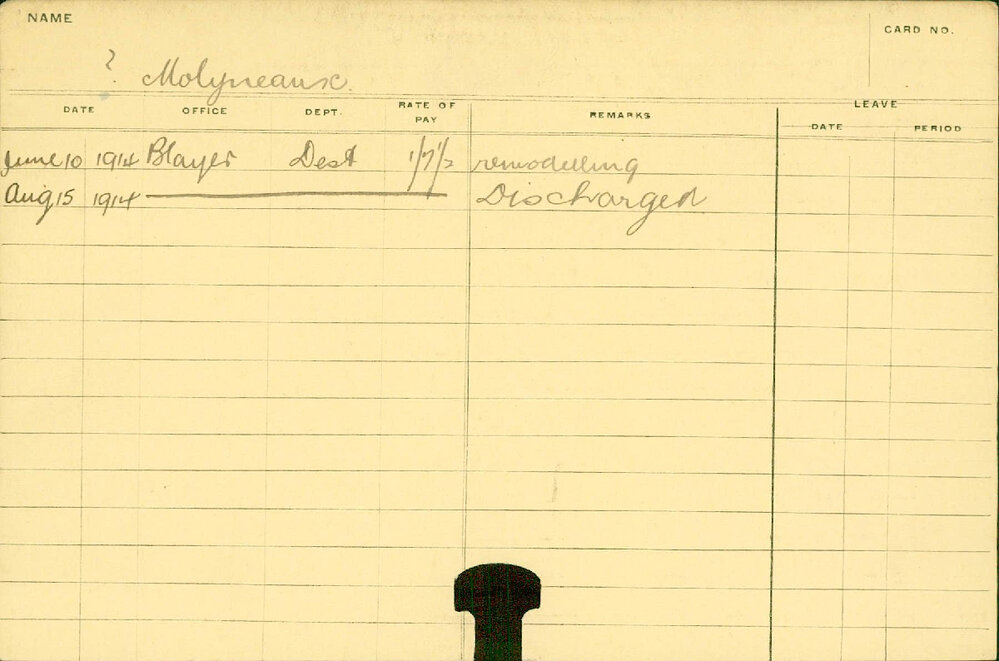 NAME
CARD NO.
? Molyneaux.
DATE OFFICE DEPT. RATE OF PAY REMARKS LEAVE
DATE PERIOD
June 10 1914 Blayer Dest 1/7½ remodelling
Aug 15 1914 Discharged